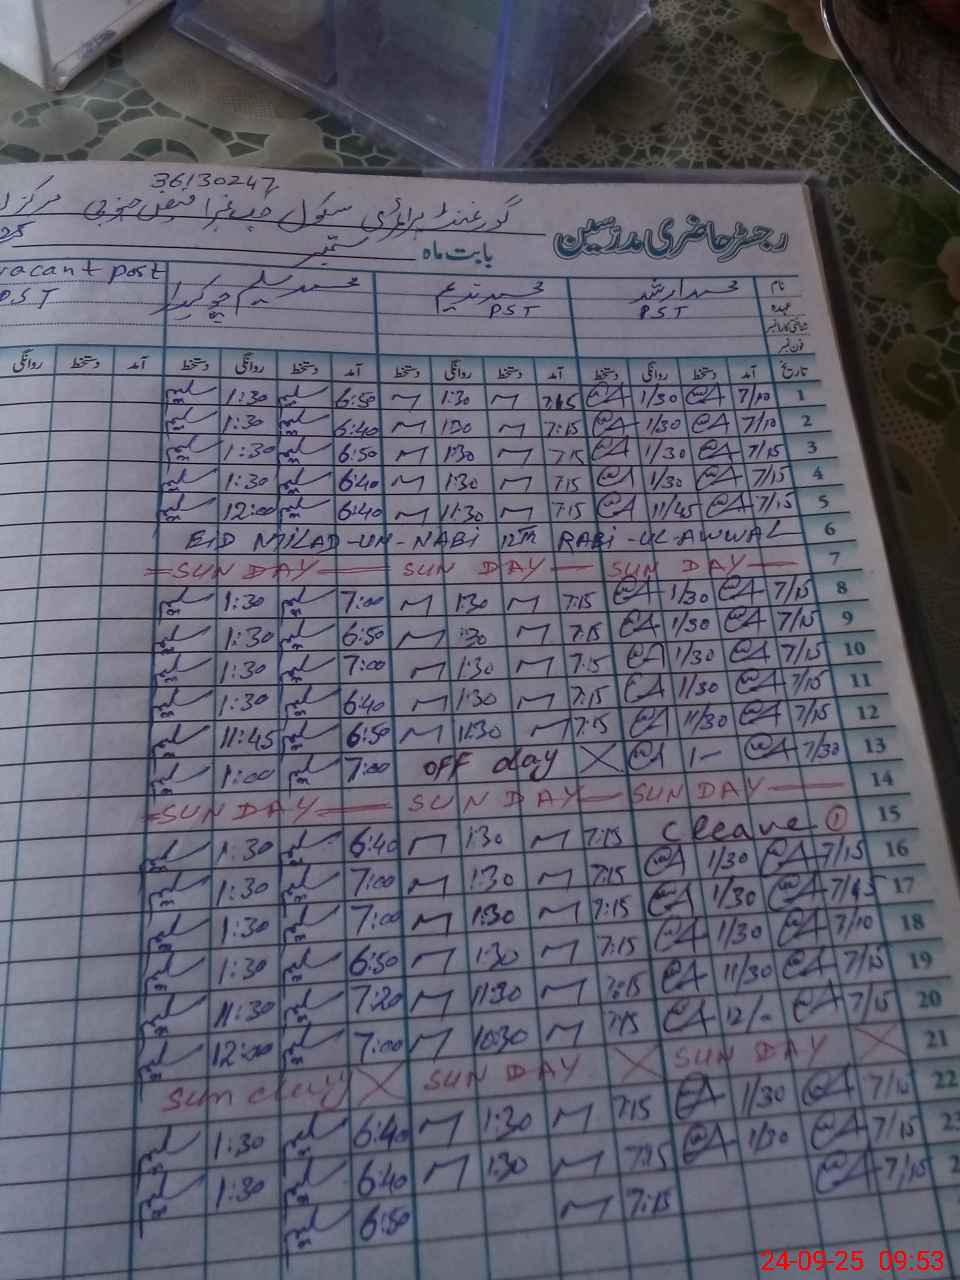 36130247
گورنمنٹ پرائمری سکول
رجسٹر حاضری مدرسین
بابت ماہ ستمبر 25
نام محمد ارشد محمد ندیم محمد سلیم چوکیدار vacant post
عہدہ PST PST PST
شناختی کارڈ نمبر
فون نمبر
تاریخ آمد دستخط روانگی دستخط آمد دستخط روانگی دستخط آمد دستخط روانگی دستخط آمد دستخط روانگی
1 7/10 1/30 7:15 1:30 6:50 1:30
2 7/10 1/30 7:15 1:30 6:40 1:30
3 7/15 1/30 7:15 1:30 6:50 1:30
4 7/15 1/30 7:15 1:30 6:40 1:30
5 7/15 11/45 7:15 11:30 6:40 12:00
6 EID MILAD-UN-NABI 12TH RABI-UL-AWWAL
7 SUNDAY SUN DAY SUN DAY
8 7/15 1/30 7:15 1:30 7:00 1:30
9 7/15 1/30 7:15 1:30 6:50 1:30
10 7/15 1/30 7:15 1:30 7:00 1:30
11 7/15 1/30 7:15 1:30 6:40 1:30
12 7/15 11/30 7:15 11:30 6:50 11:45
13 7/30 1- OFF day 7:00 1:00
14 SUNDAY SUN DAY SUN DAY
15 C leave 1 7:15 1:30 6:40 1:30
16 7/15 1/30 7:15 1:30 7:00 1:30
17 7/15 1/30 7:15 1:30 7:00 1:30
18 7/10 1/30 7:15 1:30 6:50 1:30
19 7/15 11/30 7:15 11:30 7:20 11:30
20 7/15 12/- 7:15 10:30 7:00 12:00
21 SUN DAY SUN DAY Sunday
22 7/10 1/30 7:15 1:30 6:40 1:30
23 7/15 1/30 7:15 1:30 6:40 1:30
7/15 7:15 6:50
24-09-25 09:53